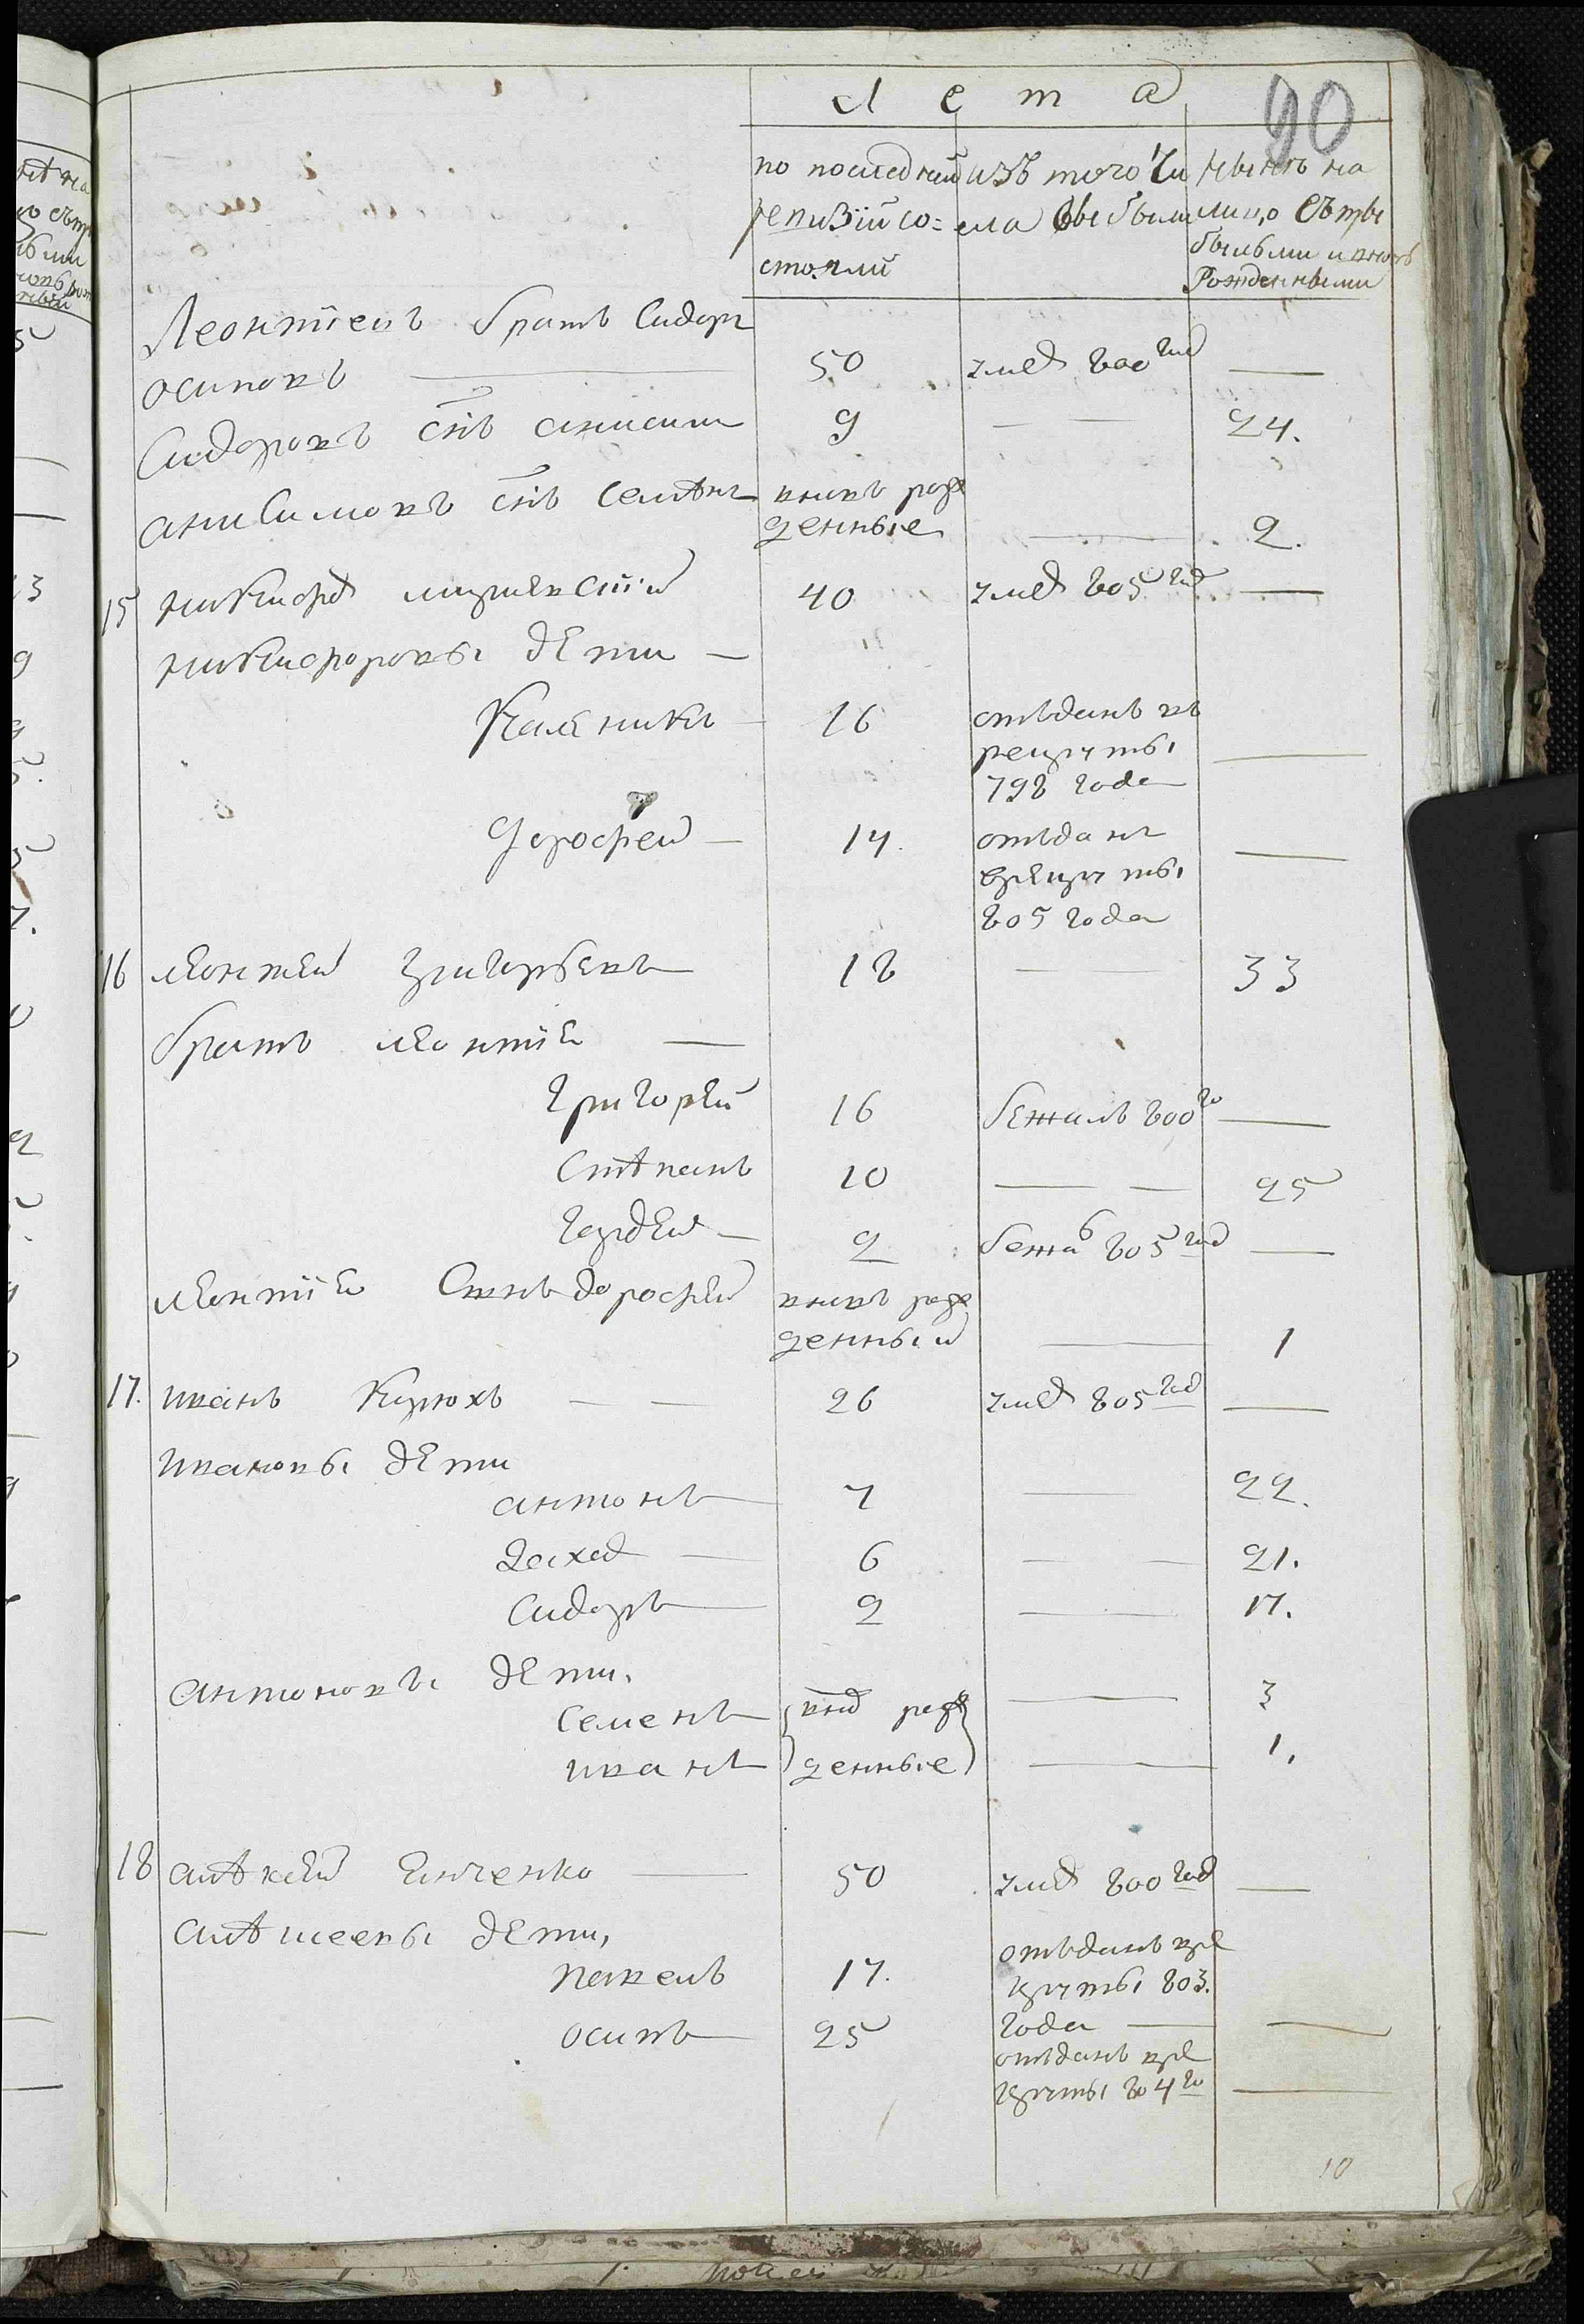 Лета
90
по последней ревизiи состояли
изъ того числа выбыли
ныне на лицо съ прибылыми и вновь рожденными
Леонтiевъ братъ Сидоръ
Осиповъ 50 умер 800 год —
Сидоровъ снъ Анисим 9 — 24.
Анисимовъ снъ Семѣнъ вновь рож
денные — 2.
15 Никифор 40 умер 805 год —
Никифоровы дети —
Каленикъ 16 отъданъ въ
рекруты —
798 года
Дорофей — 14. отъданъ
в рекруты —
805 года
16 Леонтей Григорьевъ 18 — 33
братъ Леонтiе —
Григорей 16 бежалъ 800го —
Стѣпанъ 10 — — 25
Гордей — 2 бежа 805 год —
Леонтiе Сынъ Дорофей вновь рож
денный — 1
17. Иванъ Кирюхъ — — 26 умер 805 год —
Ивановы дети
Антонъ 7 — 22.
Захар — 6 — — 21.
Сидоръ 2 — 17.
Антоновы дети.
Семенъ внов рож — 3
Иванъ денные — 1.
18 Алѣксей — 50 умер 800 год —
Алѣксеевы дети,
Павелъ 17. отъданъ в ре
круты 803.
Осипъ 25 года — —
отъданъ в ре
круты 804го —
10